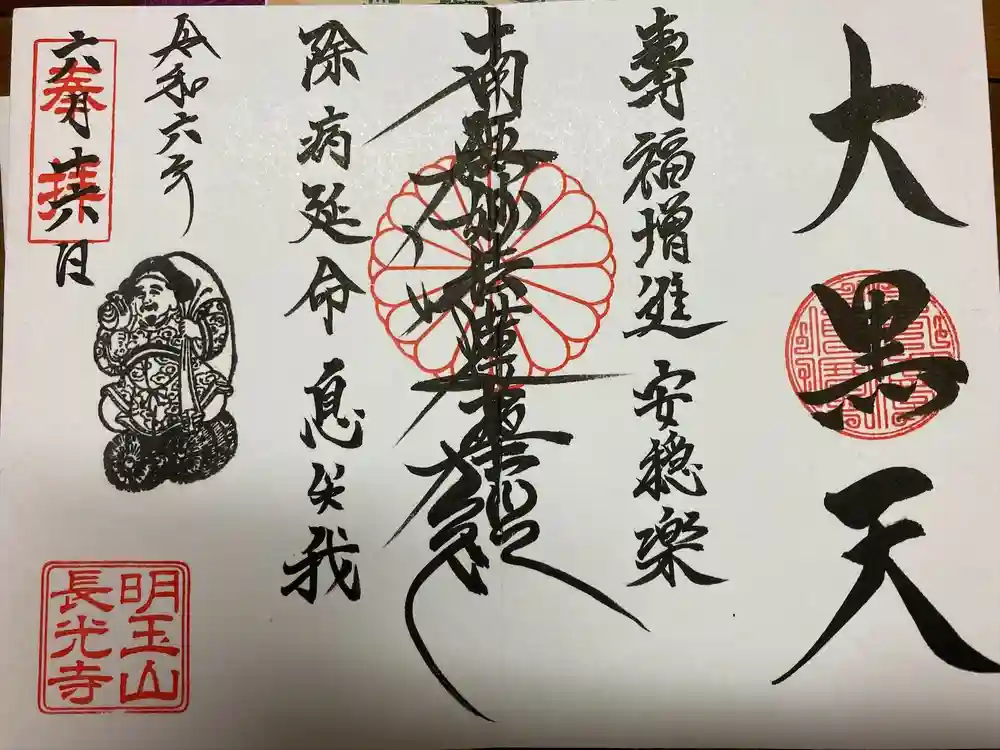 大黒天
壽福増進 安穏楽
南無妙法蓮華経
除病延命 息我
令和六年
奉拝
六月廿六日
明玉山
長光寺